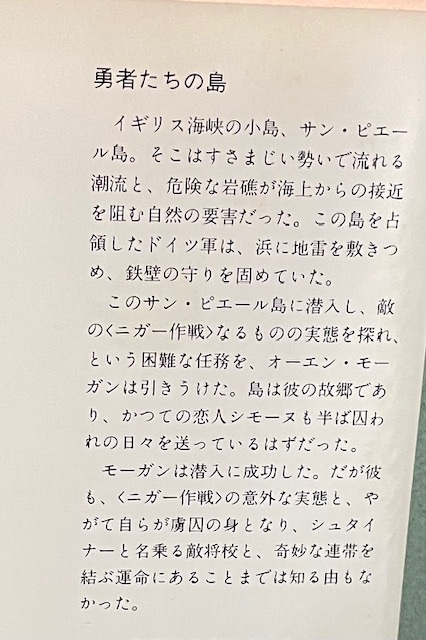 勇者たちの島
イギリス海峡の小島、サン・ピエー
ル島。そこはすさまじい勢いで流れる
潮流と、危険な岩礁が海上からの接近
を阻む自然の要害だった。この島を占
領したドイツ軍は、浜に地雷を敷きつ
め、鉄壁の守りを固めていた。
このサン・ピエール島に潜入し、敵
の〈ニガー作戦〉なるものの実態を探れ、
という困難な任務を、オーエン・モー
ガンは引きうけた。島は彼の故郷であ
り、かつての恋人シモーヌも半ば囚わ
れの日々を送っているはずだった。
モーガンは潜入に成功した。だが彼
も、〈ニガー作戦〉の意外な実態と、や
がて自らが虜囚の身となり、シュタイ
ナーと名乗る敵将校と、奇妙な連帯を
結ぶ運命にあることまでは知る由もな
かった。